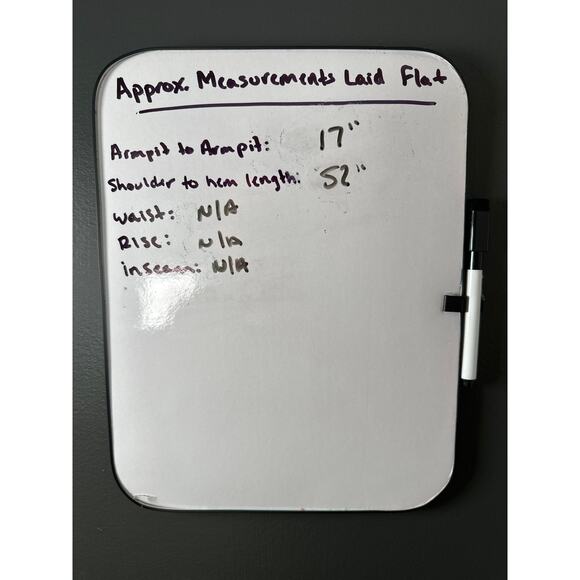 Approx. Measurements Laid Flat
Armpit to Armpit: 17"
Shoulder to hem length: 52"
waist: N/A
Rise: N/A
inseam: N/A